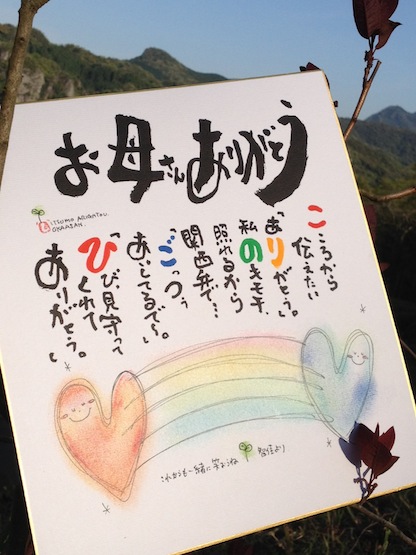 お母さんありがとう
ITSUMO ARIGATOU.
OKAASAN.
こころから
伝えたい
「ありがとう。」
私のキモチ
照れるから
関西弁で…
「ごっつぅ
あいしてるで〜。」
「ひび、見守って
くれて
ありがとう。」
これからも一緒に笑おうね
より